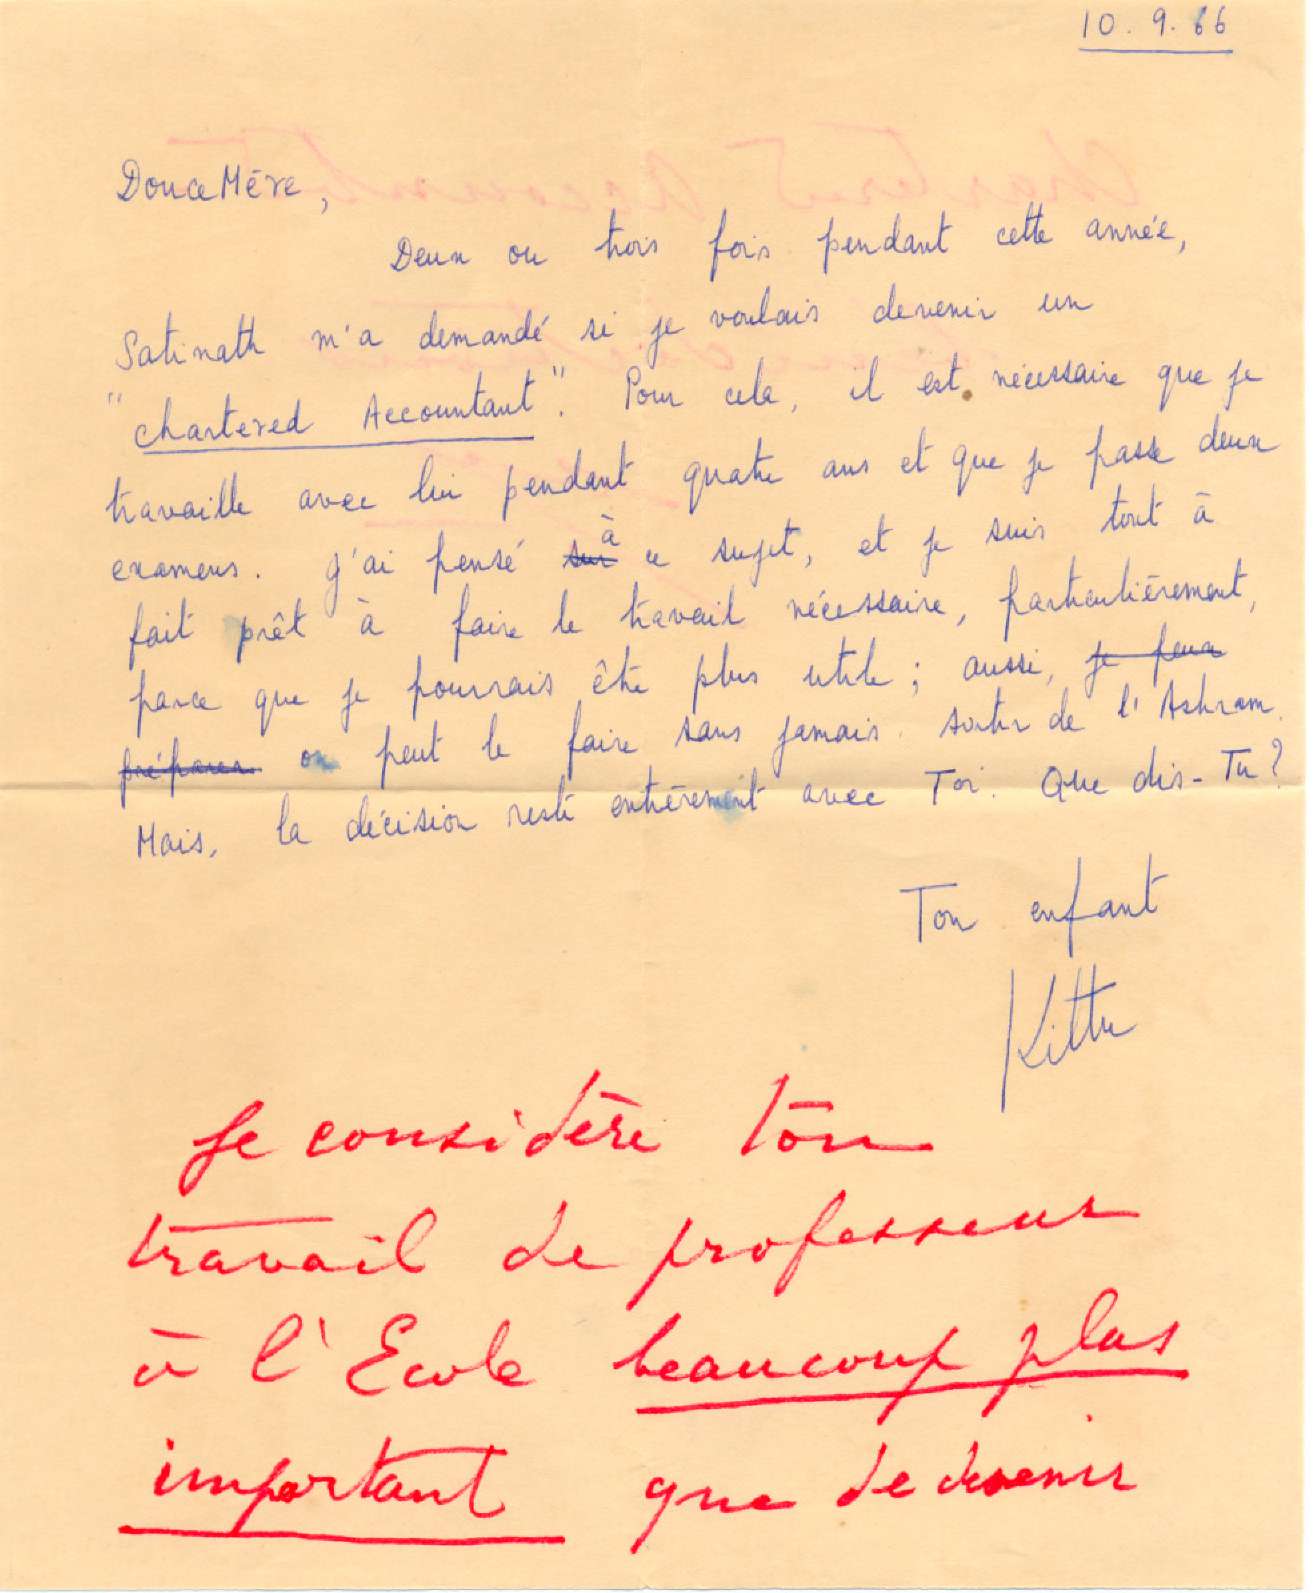 10.9.66
Douce Mère,
Deux ou trois fois pendant cette année,
Satinath m'a demandé si je voulais devenir un
"Chartered Accountant". Pour cela, il est nécessaire que je
travaille avec lui pendant quatre ans et que je passe deux
examens. J'ai pensé sur à ce sujet, et je suis tout à
fait prêt à faire le travail nécessaire, particulièrement,
parce que je pourrais être plus utile ; aussi, je peux
préparer on peut le faire sans jamais sortir de l'Ashram.
Mais, la décision reste entièrement avec Toi. Que dis-Tu?
Ton enfant
Kittu
Je considère ton
travail de professeur
à l'Ecole beaucoup plus
important que de devenir